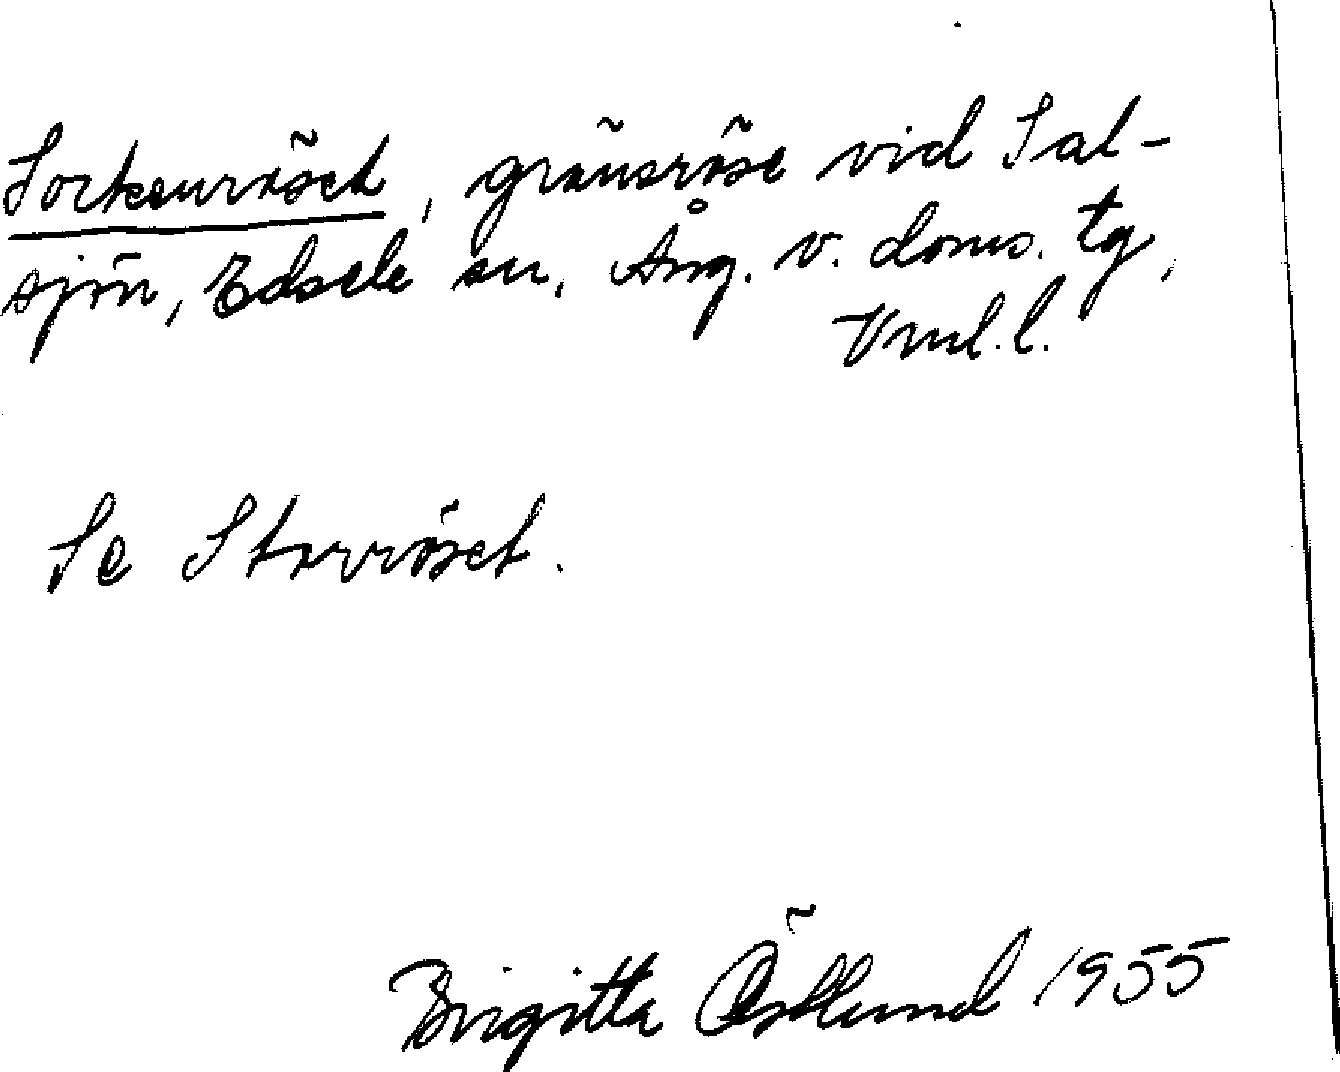 Sockenröset, gränsröse vid Sal-
sjön, Edsele sn, Ång. v. doms. tg,
Vml. l.
Se Storröset.
Birgitta Östlund 1955